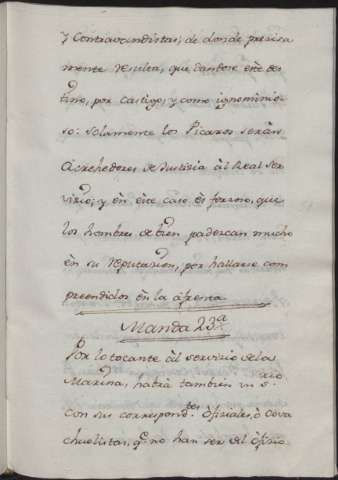 y Contravandistas; de donde precisa
mente resulta, que dandose este des
tino, por castigo, y como ignominio-
so: solamente los Picaros serán
Acrehedores de Justisia ál Real Ser
vizio; y én éste caso és forzoso, que
los hombres de bien padezcan mucho
én su reputazion, por hallarse com
preendidos én la áfrenta.
Manda 23.ª
Por lo tocante ál servizio de la
Marina, habrá tambien un s.rio
con sus correspond.tes óficiales, ó cova
chuelistas, q.e no han ser del ofizio